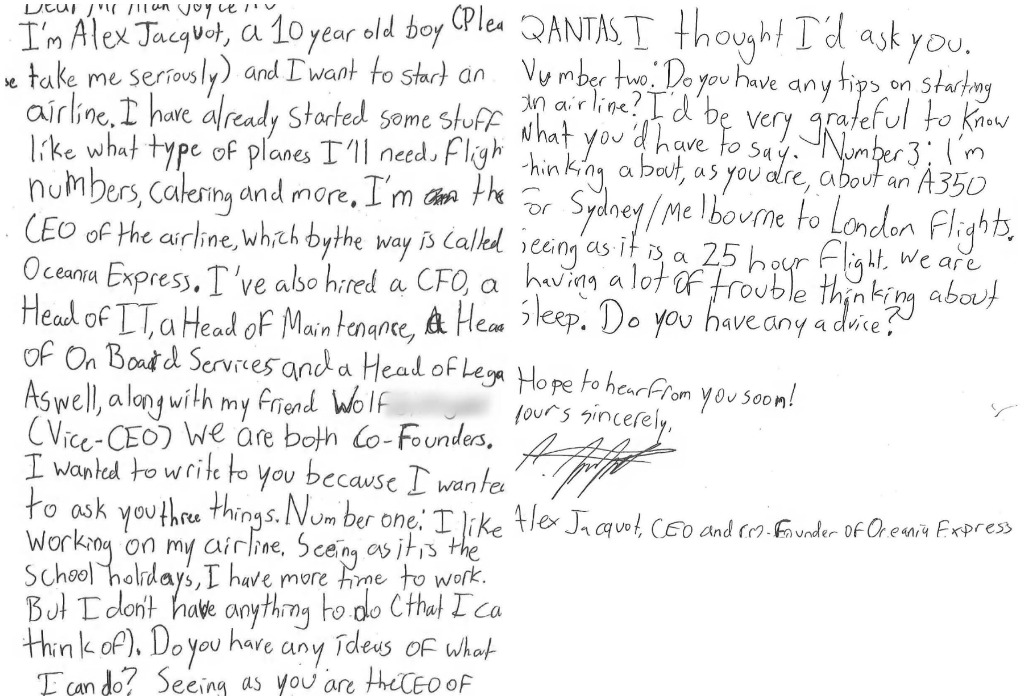 Dear Mr Alan Joyce AO
I'm Alex Jacquot, a 10 year old boy (Plea
se take me seriously) and I want to start an
airline. I have already started some stuff
like what type of planes I'll need, fligh
numbers, catering and more. I'm the
CEO of the airline, which by the way is called
Oceania Express. I've also hired a CFO, a
Head of IT, a Head of Maintenance, A Hea
of On Board Services and a Head of Lega
Aswell, along with my friend Wolf
(Vice-CEO) We are both Co-Founders.
I wanted to write to you because I wanted
to ask you three things. Number one: I like
working on my airline. Seeing as it is the
school holidays, I have more time to work.
But I don't have anything to do (that I ca
think of). Do you have any ideas of what
I can do? Seeing as you are the CEO of
QANTAS, I thought I'd ask you.
Number two: Do you have any tips on starting
an airline? I'd be very grateful to know
what you'd have to say. Number 3: I'm
thinking about, as you are, about an A350
for Sydney/Melbourne to London flights.
seeing as it is a 25 hour flight, we are
having a lot of trouble thinking about
sleep. Do you have any advice?
Hope to hear from you soon!
Yours sincerely,
Alex Jacquot, CEO and co-Founder of Oceania Express